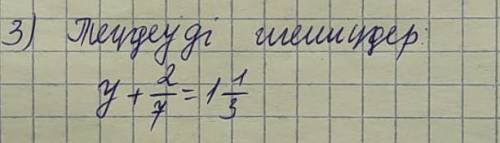 3) Теңдеуді шешіңдер:
y + 2/7 = 1 1/3